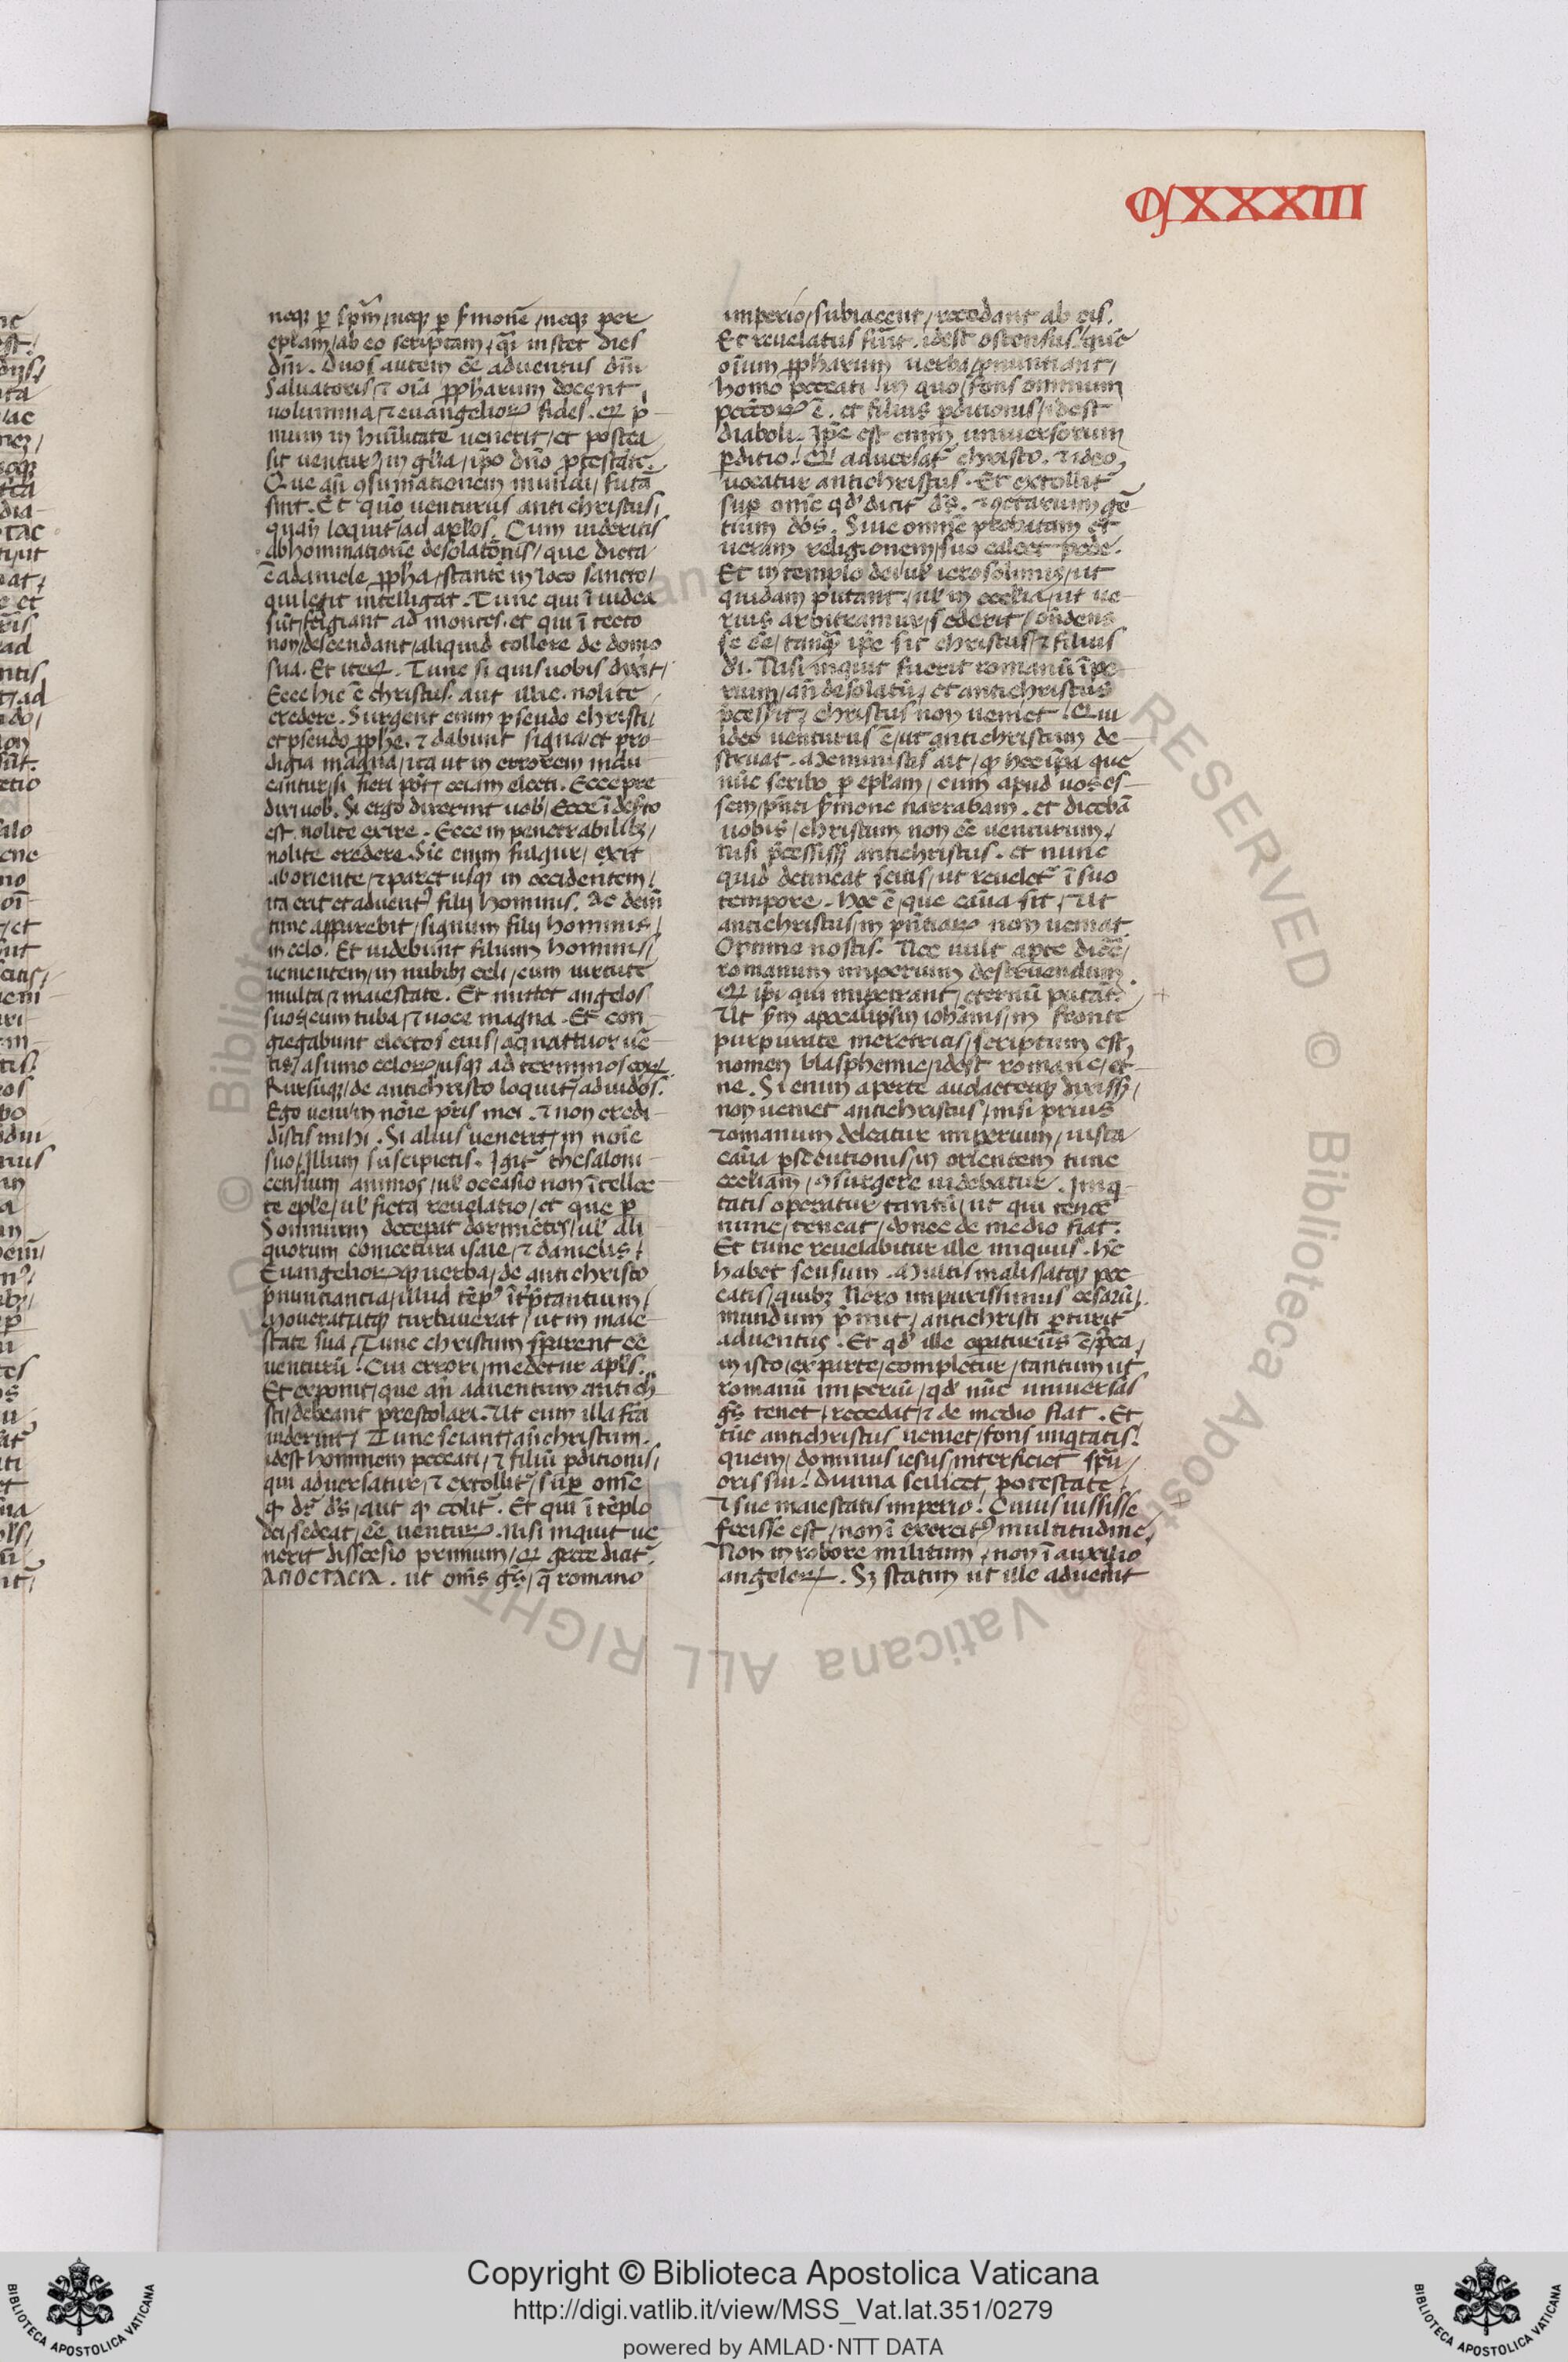 CXXXIII
neqꝫ ꝑ sp̅m / neqꝫ ꝑ s̓mone̅ / neqꝫ per
ep̅lam / ab eo scriptam / q̅i instet dies
dn̅i. Duos autem e̅e̅ adventus dn̅i
Salvatoris / ⁊ oi̅a ꝓph̅arum docent
volumina / ⁊ evangelioꝝ fides. qꝛ p̓
mum in hui̅litate venerit / et postea
sit venturꝰ in gl̅ia / ip̅o dn̅o ꝓtestate.
Que an̅ ꝯsum̅ationem mundi / futa̅
sint. Et quo̅ venturus antichristus /
quan̅ loquit̅ / ad ap̅los. Cum videritis
abhominatione̅ desolato̅nis / que dicta
e̅ a daniele ꝓph̅a / stante̅ in loco sancto /
qui legit intelligat. Tunc qui i̅ iudea
su̅t / fugiant ad montes. et qui i̅ tecto
non / descendant / aliquid tollere de domo
sua. Et iteꝝ. Tunc si quis vobis dixit /
Ecce hic e̅ christus. aut illic. nolite
credere. Surgent enim pseudo christi /
et pseudo ꝓph̅e. ⁊ dabunt signa / et pro
digia magna / ita ut in errorem indu
cantur / si fieri po̅t / eciam electi. Ecce pre
dixi vob̅. Si ergo dixerint vob̅ / Ecce i̅ desto
est. nolite exire. Ecce in penetrabilibꝫ /
nolite credere. Sic enim fulgur / exit
ab oriente / ⁊ paret usqꝫ in occidentem /
ita erit et adventꝰ filij hominis. Ac dein̅
tunc apparebit / signum filij hominis /
in celo. Et videbunt filium hominis /
venientem / in nubibꝫ celi / cum virtute
multa ⁊ maiestate. Et mittet angelos
suos / cum tuba / ⁊ voce magna. Et con
gregabunt electos eius / a quattuor ve̅
tis / a sumo celoꝝ / usqꝫ ad terminos eoꝝ.
Rursusqꝫ / de antichristo loquit̅ / ad iudos.
Ego veni / in no̅ie pr̅is mei. ⁊ non credi
distis mihi. Si alius venerit / in no̅ie
suo / illum suscipietis. Igit̅ thesaloni
censium animos / ul̓ occasio non i̅tellec
te ep̅le / ul̓ ficta revelatio / et que ꝑ
Somnium decepit dormie̅tes / ul̓ ali
quorum coniectura isaie / ⁊ danielis /
Evangelioꝝqꝫ verba / de antichristo
p̓nunciancia / illud te̅pꝰ i̅tp̓tantium /
Moverat / atqꝫ turbaverat / ut in maie
state sua / Tunc christum sperent e̅e̅
venturu̅. Cui errori / medetur ap̅ls.
Et exponit / que an̅ adventum antich̅
sti / debeant prestolari. Ut cum illa fc̅a
viderint / Tunc sciant / an̅christum.
idest hominem peccati / ⁊ filiu̅ ꝑditionis /
qui adversatur / ⁊ extollit̅ / suꝑ om̅e
qꝫ dr̅. ds̅ / aut qꝫ colit̅. Et qui i̅ te̅plo
dei / sedeat / e̅e̅ venturꝰ. nisi inquit ve
nerit discesio primum / qꝛ grece dicit̅
ΑΠΟCΤΑCΙΑ. ut om̅s ge̅s / q̅ romano
imperio / subiacent / recedant ab eis.
Et revelatus fu̅it. idest ostensus / que̅
oi̅um ꝓph̅arum verba / p̓nuntiant /
homo peccati / in quo / fons omnium
pecc̅oꝝ e̅. et filius ꝑditionis / idest
diaboli. Ip̅e est enim universorum
ꝑditio! qꝛ adversat̅ christo. ⁊ ideo,
vocatur antichristus. Et extollit̅
suꝑ om̅e qd̓ dicit̅ ds̅. ⁊ cetarum ge̅
tium do̅s. Sive omne̅ probatam et
veram religionem / suo calcet pede.
Et in templo dei / ul̓ ierosolimis / ut
quidam putant / ul̓ in ecclia / ut ve
rius arbitramur / sederit / on̅dens
se e̅e̅ / tanqꝫ ip̅e sit christus / ⁊ filius
di̅. Nisi inquit fuerit romanu̅ i̅pe
rium / an̅ desolatu̅ / et antichristus
p̓cesserit / christus non veniet! Qui
ideo venturus e̅ / ut antichristum de
struat. Meministis ait / qꝫ hec ip̅a que
nu̅c scribo ꝑ ep̅lam / cum apud vos es
sem / pn̅ti s̓mone narrabam. et diceba̅
vobis / christum non e̅e̅ venturum /
nisi p̓cessiss̅ antichristus. et nunc
quid detineat scitis / ut revelet̅ i̅ suo
tempore. hoc e̅ / que ca̅u̅a sit / Ut
antichristus / in pn̅tiaꝝ non veniat.
Optime nostis. Nec vult aꝑte dice̅ /
romanum imperium destruendum
qꝛ ip̅i qui imperant / eternu̅ putant.
Ut s̓m apocalipsin ioha̅nis / in fronte
purpurate meretricis / scriptum est,
nomen blasphemie / idest romane / et
ne. Si enim aperte audacterqꝫ dixiss̅ /
non veniet antichristus / nisi prius
romanum deleatur imperium / iusta
ca̅u̅a ꝑsecutionis / in orientem tunc
eccliam / ꝯsurgere videbatur. Iniq
tatis operatur tantu̅ / ut qui tenet
nunc / teneat / donec de medio fiat.
Et tunc revelabitur ille iniquus. hu̅c
habet sensum. Multis malis / atqꝫ pec
catis / quibꝫ Nero impurissimus cesaru̅ /
mundum p̓mit / antichristi ꝑturit
adventus. Et qd̓ ille opaturus e̅ / p̓ea /
in isto / ex parte / completur / tantum ut
romanu̅ imperiu̅ / qd̓ nu̅c universas
ge̅s tenet / recedat / ⁊ de medio fiat. Et
tu̅c antichristus veniet / fons iniq̅tatis!
quem / dominus iesus / interficiet sp̅u /
oris sui! divina scilicet, potestate /
⁊ sue maiestatis imperio! Cuius iussisse
fecisse est / non i̅ exercitꝰ multitudine,
Non in robore militum / non i̅ auxilio
angeloꝝ. Sꝫ statim ut ille advenit
Copyright © Biblioteca Apostolica Vaticana
http://digi.vatlib.it/view/MSS_Vat.lat.351/0279
powered by AMLAD·NTT DATA